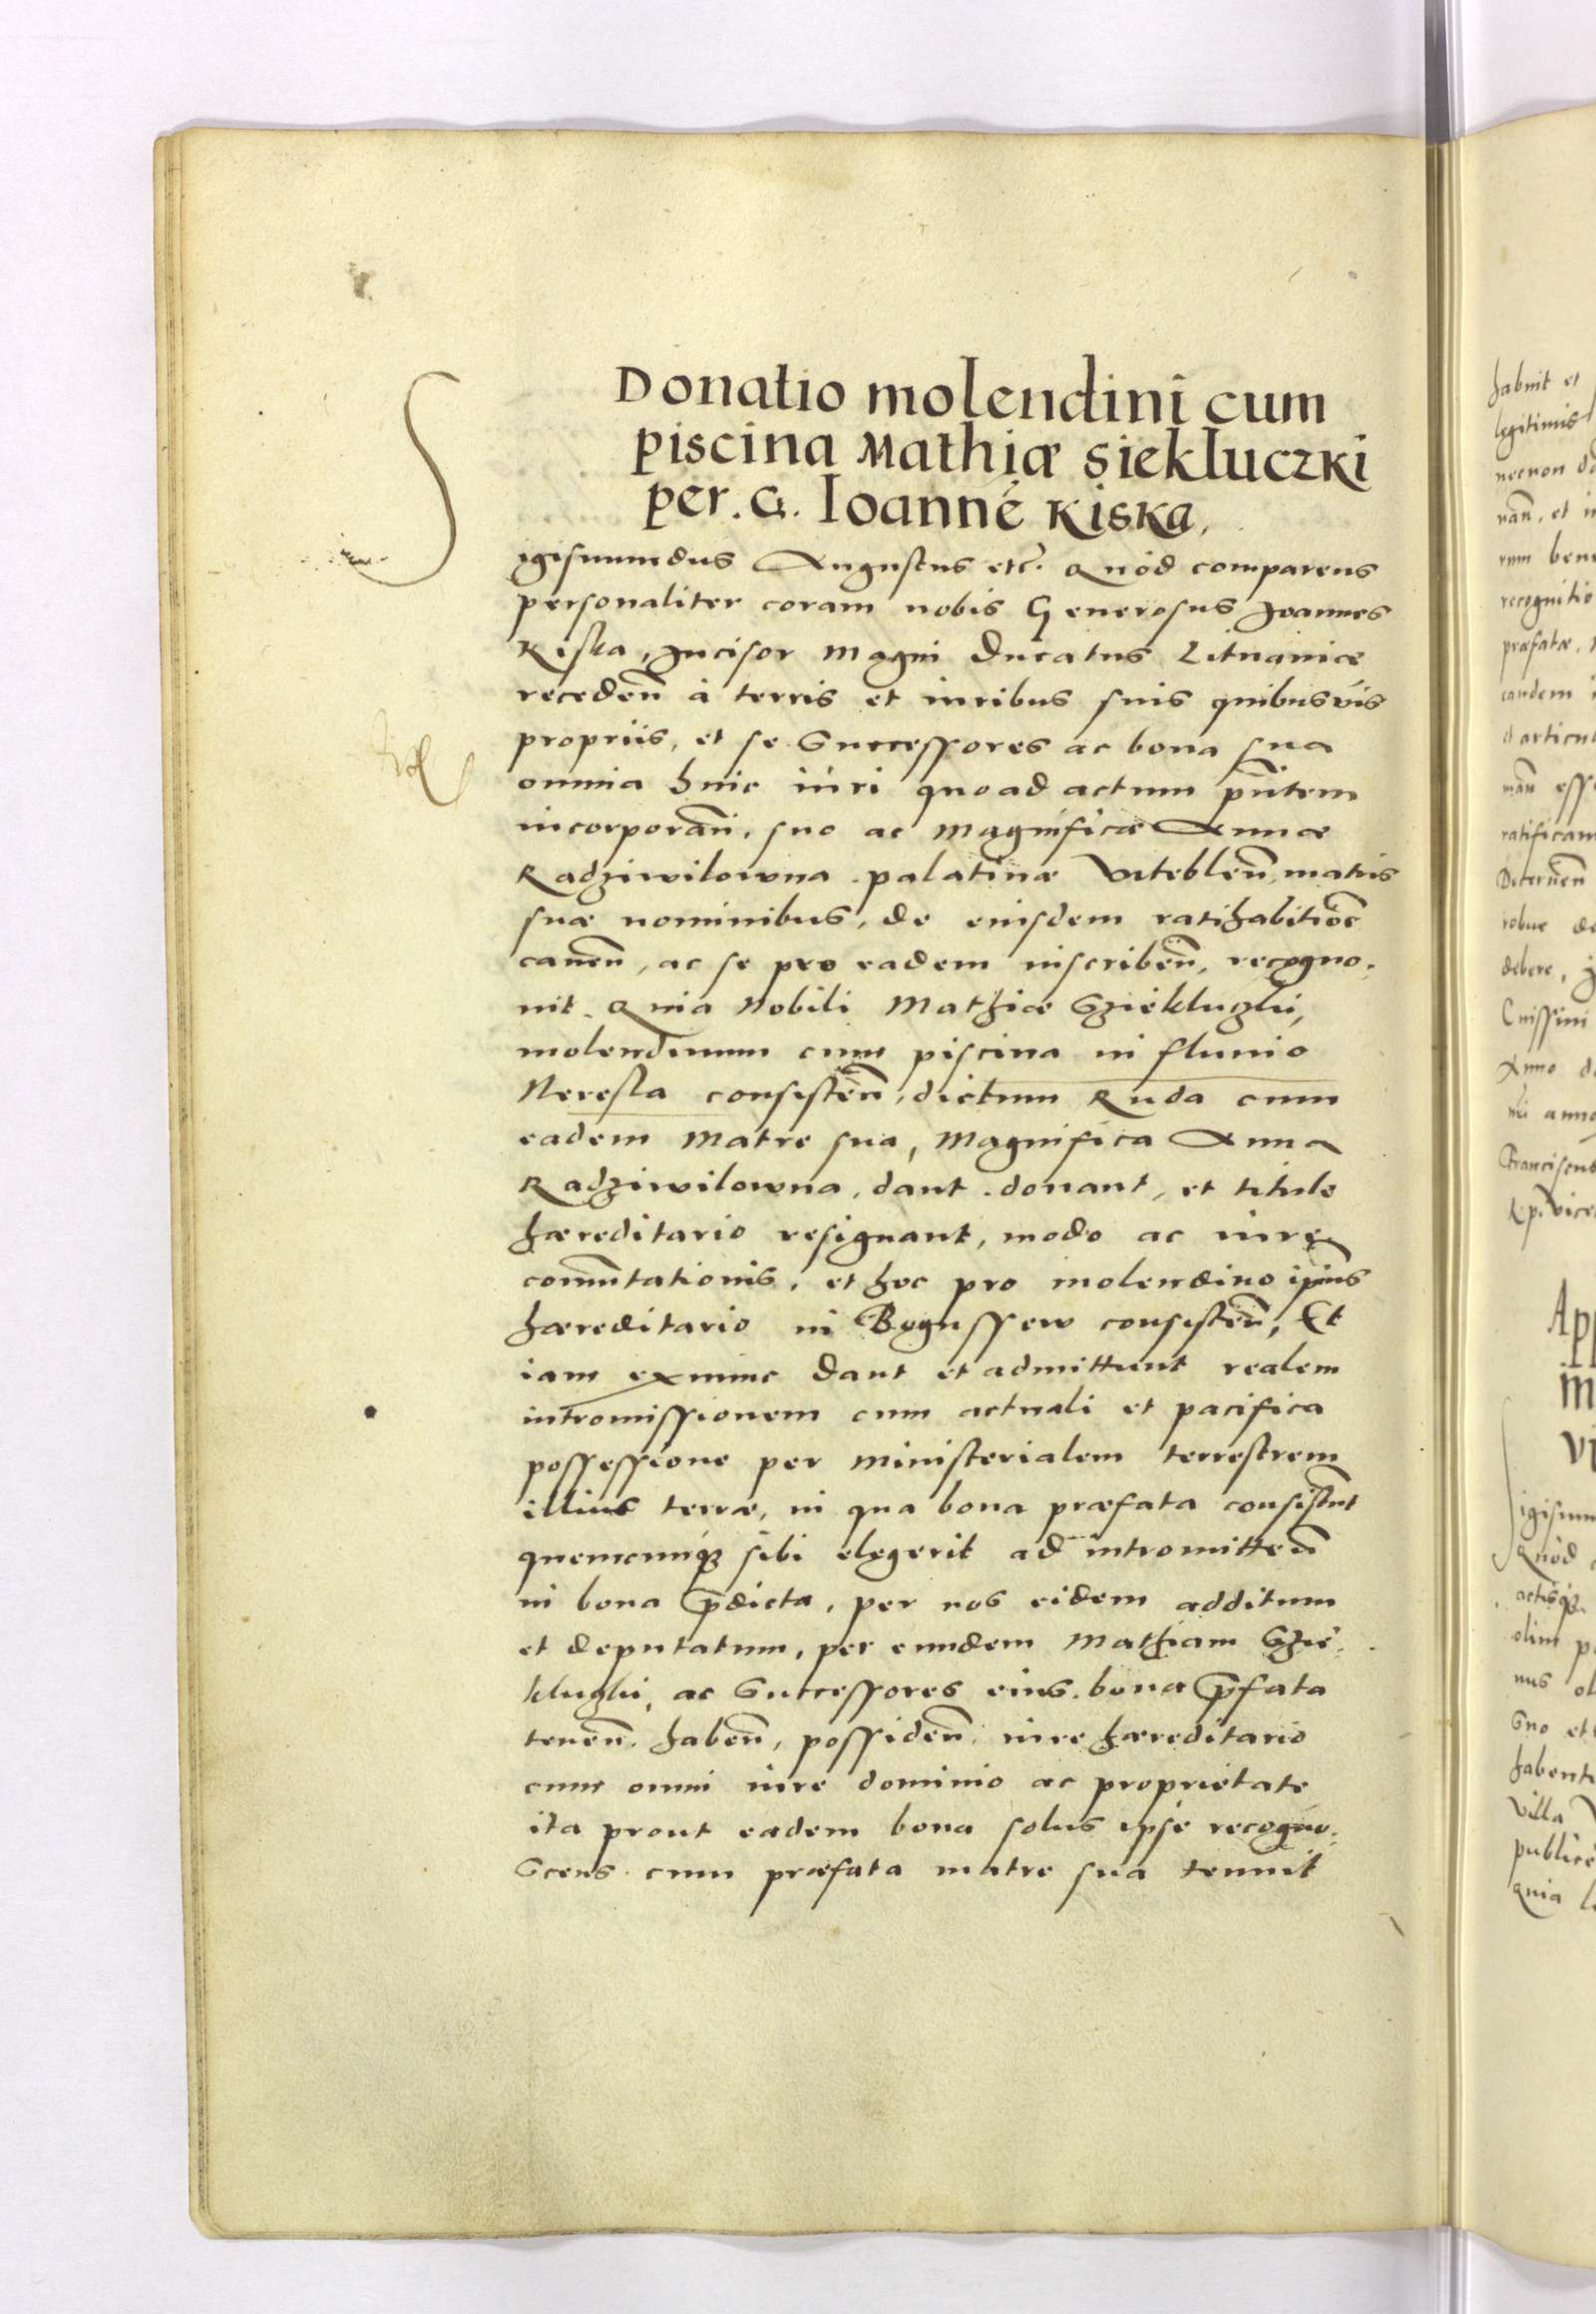 Donatio molendini cum
piscina Mathiæ Siekluczki
per. G. Ioannē Kiska.
Sigismundus Augustus etc. Quod comparens
personaliter coram nobis Generosus Joannes
Kiska, Jncisor Magni Ducatus Lituaniæ
recedeñ à terris et iuribus suis quibusuis
propriis, et se Successores ac bona sua
omnia huic iuri quo ad actum pñtem
incorporañ, suo ac Magnificæ Annæ
Radziwilowna palatinæ Viteblen̄ matris
suæ nominibus, de eiusdem ratihabitioē
caueñ, ac se pro eadem inscribeñ, recogno-
uit. Quia Nobili Mathiæ Szieklużki,
molendinum cum piscina in fluuio
Neresla consisteñ, dictum Ruda cum
eadem Matre sua, Magnifica Anna
Radziwilowna, dant donant, et titulo
hæreditario resignant, modo ac iure
com̄utationis, et hoc pro molendino ipius
hæreditario in Bogussew consisteñ, Et
iam exnunc dant et admittunt realem
intromissionem cum actuali et pacifica
possessione per Ministerialem terrestrem
illius terræ, in qua bona præfata consistut
quemcunq; sibi elegerit ad intromitteñ
in bona p̄dicta, per nos eidem additum
et deputatum, per eundem Mathiam Szie-
klużki, ac Successores eius bona p̄fata
teneñ habeñ, possideñ iure hæreditario
cum omni iure dominio ac proprietate
ita prout eadem bona solus ipse recogno-
Scens cum præfata matre sua tenuit
habuit et
legitimis
necnon
rum bene
recognitio
præfatæ,
eandem
ratificam
Deceruen̄
debere,
Anno
Franciscus
App
Quod
olim
habent
villa
publice
quia